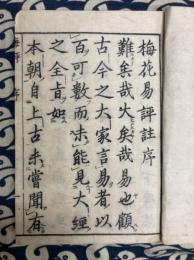 梅花易評註序
難矣哉大矣哉易也顧
古今之大家言易者以
百可數而未能見大經
之全旨如
本朝自上古未嘗聞有